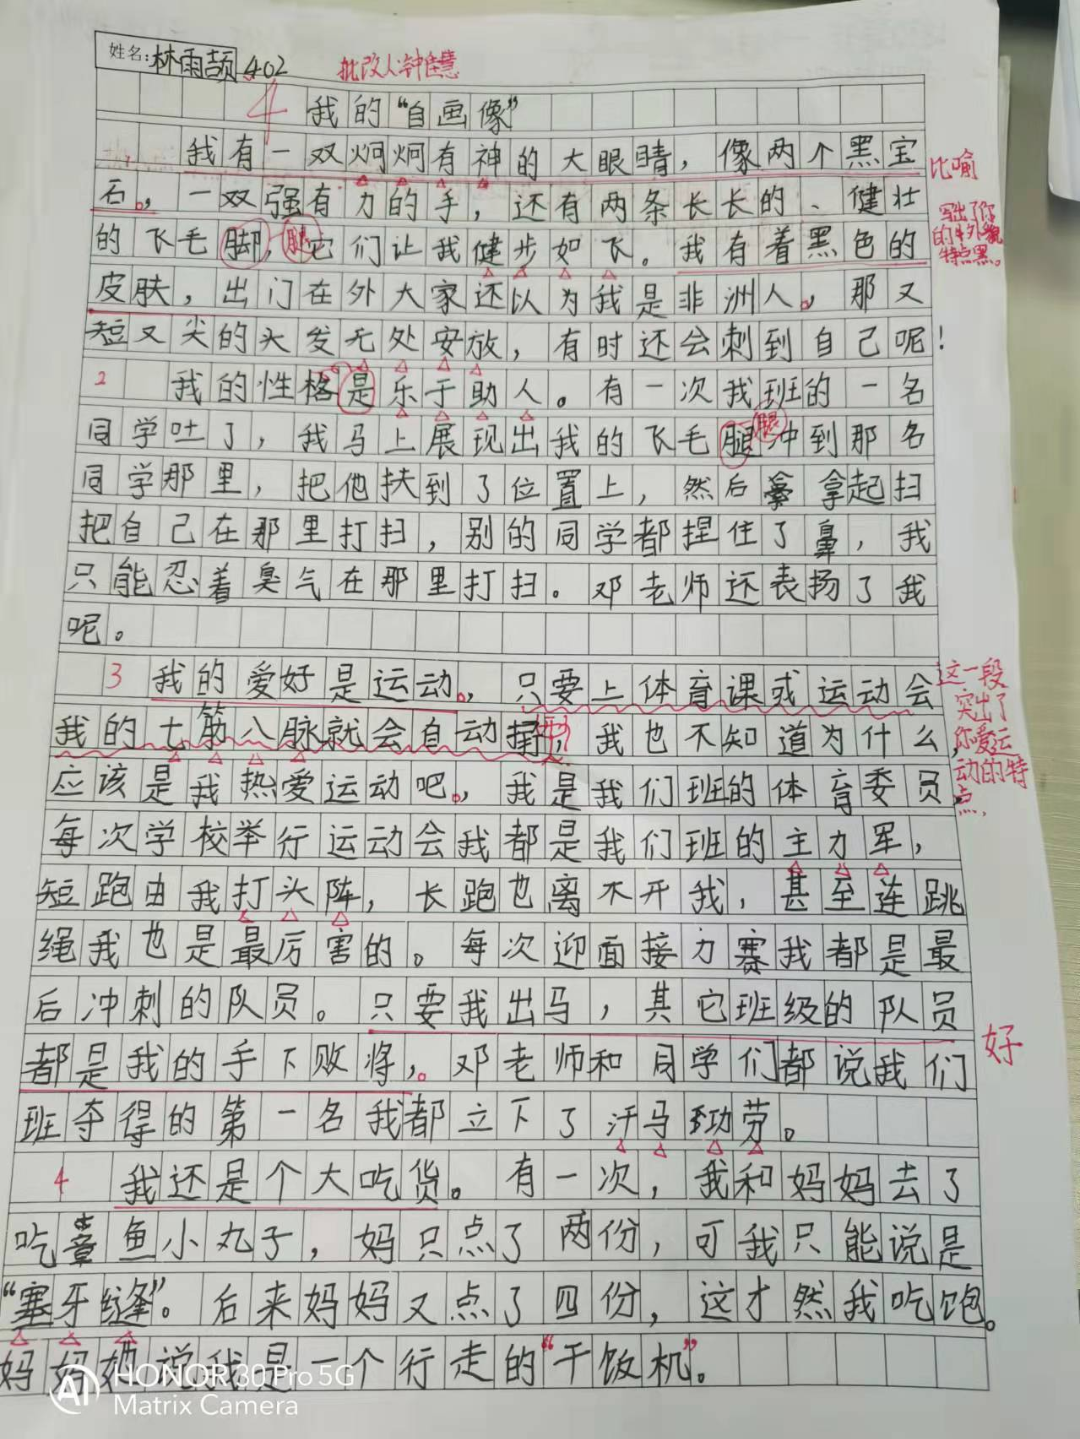 姓名:林雨颉 402
批改人:钟佳慧
4 我的“自画像”
1 我有一双炯炯有神的大眼睛，像两个黑宝
比喻
石。，一双强有力的手，还有两条长长的、健壮
写出了你的外貌特点黑。
的飞毛脚，腿它们让我健步如飞。我有着黑色的
皮肤，出门在外大家还以为我是非洲人。，那又
短又尖的头发无处安放，有时还会刺到自己呢！
2 我的性格是乐于助人。有一次我班的一名
同学吐了，我马上展现出我的飞毛腿腿冲到那名
同学那里，把他扶到了位置上，然后拿起扫
把自己在那里打扫，别的同学都捏住了鼻，我
只能忍着臭气在那里打扫。邓老师还表扬了我
呢。
3 我的爱好是运动。，只要上体育课或运动会
这一段突出了你爱运动的特点，
我的七筋八脉就会自动打，我也不知道为什么，
应该是我热爱运动吧。，我是我们班的体育委员，
每次学校举行运动会我都是我们班的主力军，
短跑由我打头阵，长跑也离不开我，甚至连跳
绳我也是最厉害的。每次迎面接力赛我都是最
后冲刺的队员。只要我出马，其它班级的队员
好
都是我的手下败将，。邓老师和同学们都说我们
班夺得的第一名我都立下了汗马功劳。
4 我还是个大吃货。有一次，我和妈妈去了
吃章鱼小丸子，妈只点了两份，可我只能说是
“塞牙缝”。后来妈妈又点了四份，这才然我吃饱。
妈妈她说我是一个行走的“干饭机”。
AI HONOR 30 Pro 5G
Matrix Camera